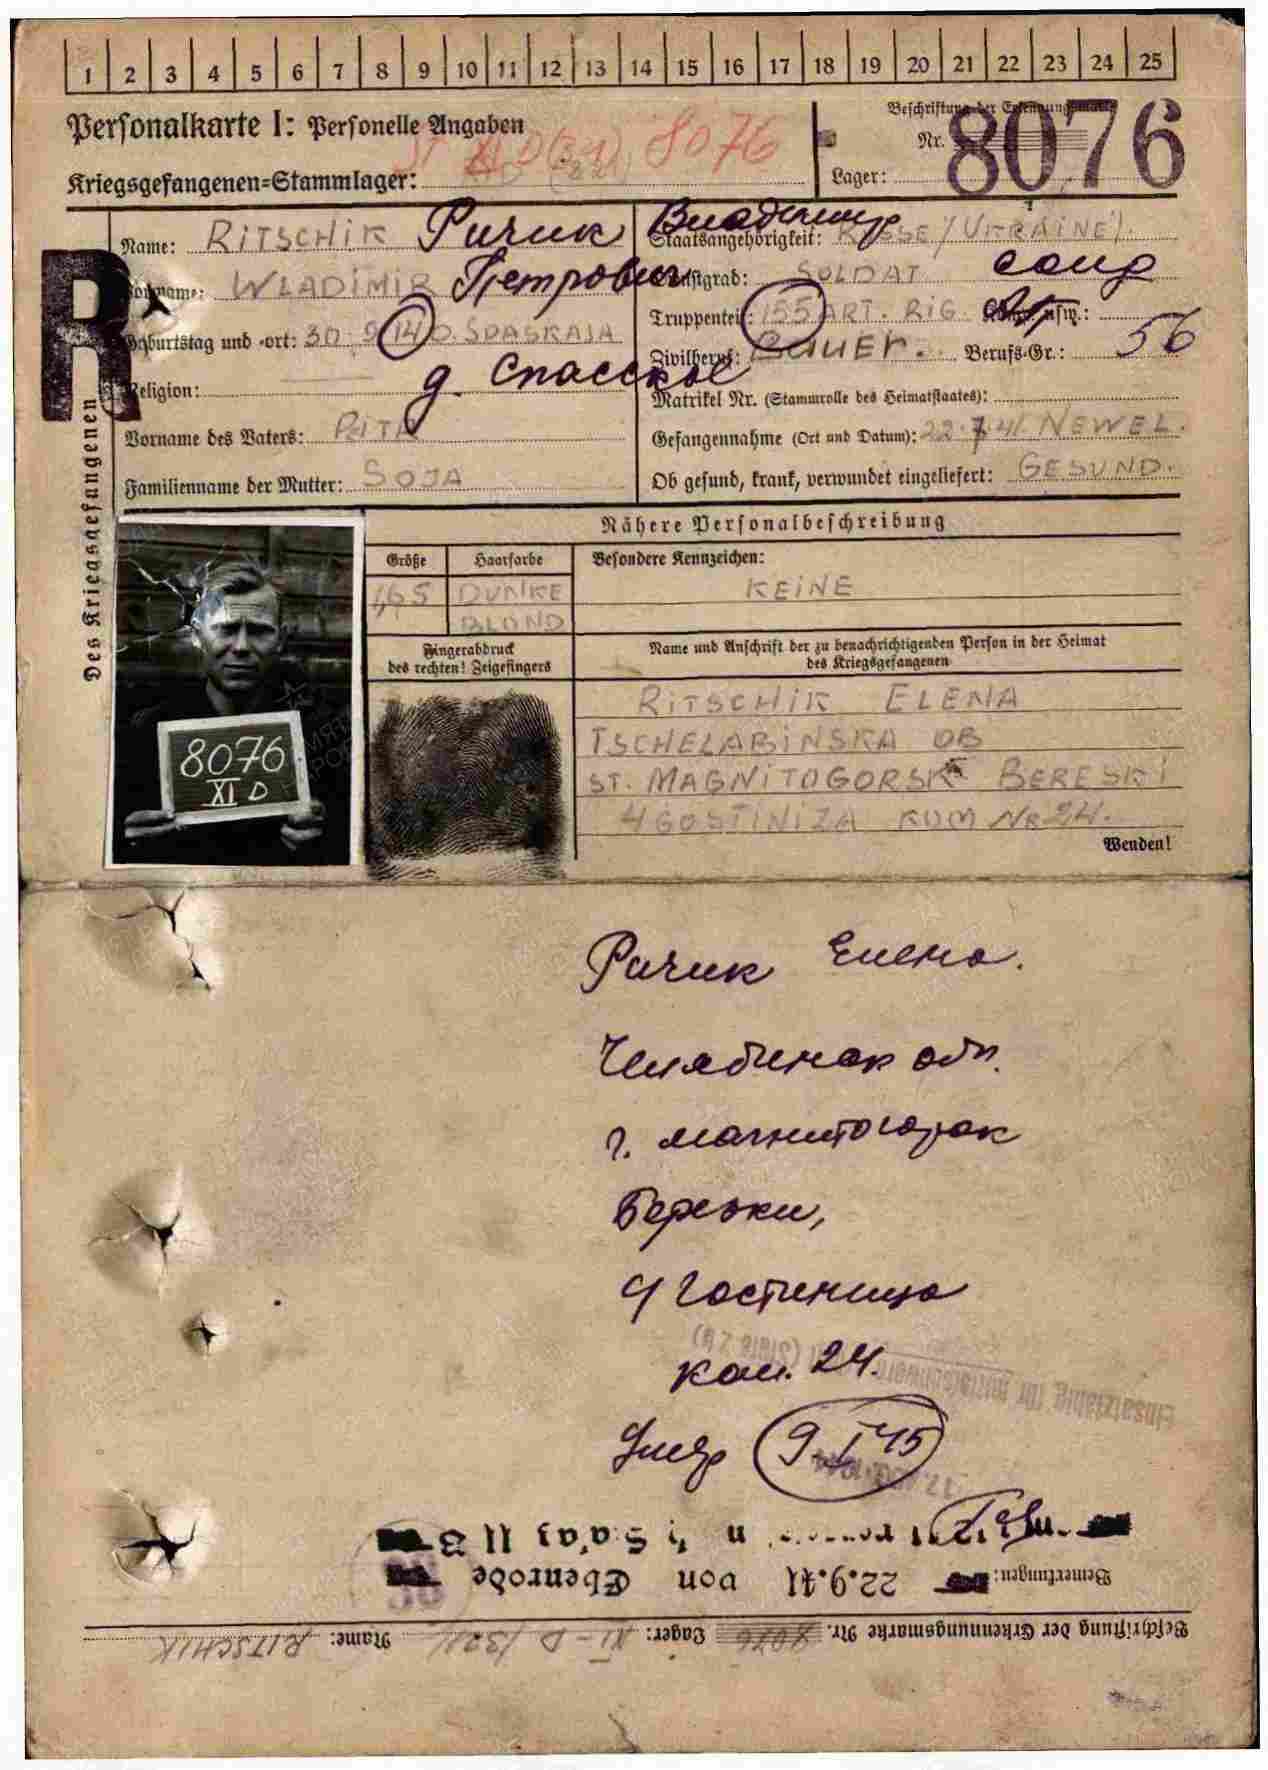 1 2 3 4 5 6 7 8 9 10 11 12 13 14 15 16 17 18 19 20 21 22 23 24 25
Personalkarte I: Personelle Angaben
Beschriftung der Erkennungsmarke
Nr. 8076
Kriegsgefangenen=Stammlager: ST XI D (321) 8076
Lager:
Des Kriegsgefangenen
R
Name: RITSCHIK Ричик Владимир
Staatsangehörigkeit: RUSSE / UKRAINE /
Vorname: WLADIMIR Петрович
Dienstgrad: SOLDAT солд
Geburtstag und -ort: 30.9.14 D. SPASKAJA
Truppenteil: 155 ART. RIG. Kom. usw.:
д. Спасское
Zivilberuf: BAUER. Berufs-Gr.: 56
Religion:
Matrikel Nr. (Stammrolle des Heimatstaates):
Vorname des Vaters:
Gefangennahme (Ort und Datum): 22.7.41. NEWEL.
Familienname der Mutter: SOJA
Ob gesund, krank, verwundet eingeliefert: GESUND.
Nähere Personalbeschreibung
Größe Haarfarbe Besondere Kennzeichen:
1,65 DUNKE BLOND KEINE
Fingerabdruck des rechten! Zeigefingers
Name und Anschrift der zu benachrichtigenden Person in der Heimat
des Kriegsgefangenen
8076
XI D
RITSCHIK ELENA
TSCHELABINSKA OB
ST. MAGNITOGORSK BERESKI
4 GOSTINIZA KOM NR 24.
Wenden!
Ричик Елена.
Челябинск обл.
г. Магнитогорск
Березки,
4 Гостиница
ком. 24.
Умер 9.I 45
Einsatzfähig für
Bemerkungen: 22.9.41 von Ebenrode
Beschriftung der Erkennungsmarke Nr. 8076 Lager: XI-D /321/ Name: RITSCHIK